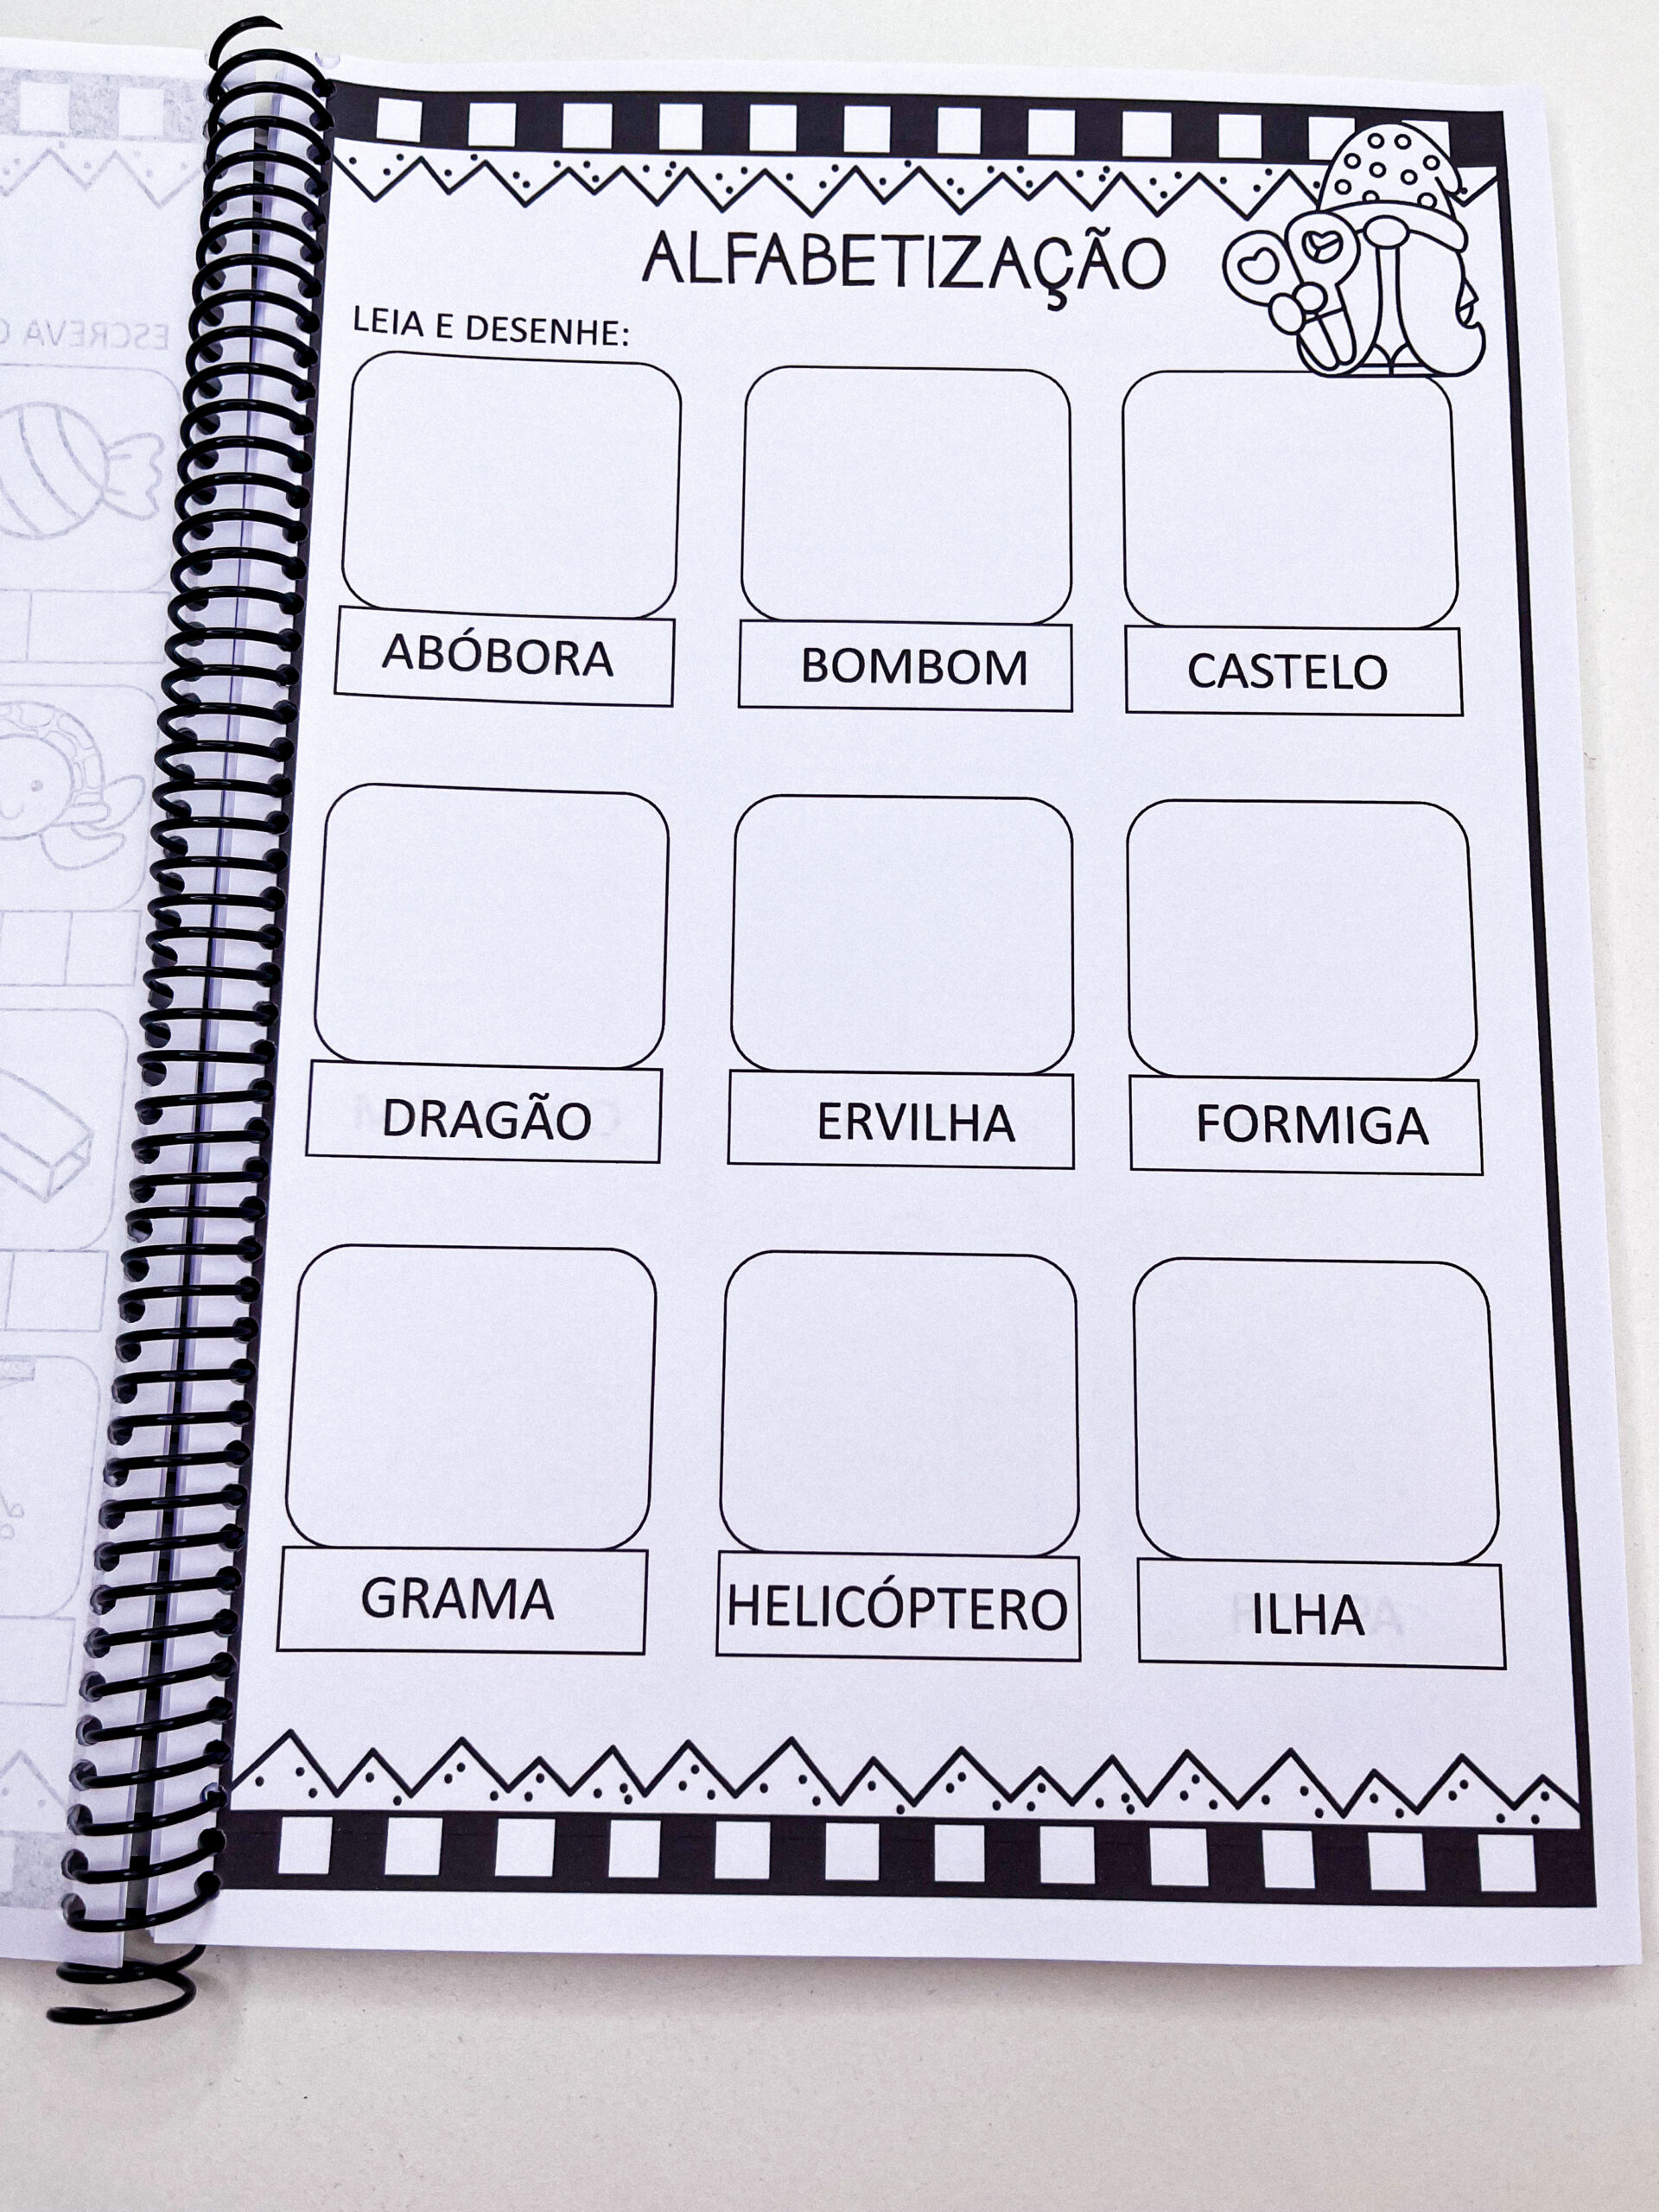 ALFABETIZAÇÃO
LEIA E DESENHE:
ABÓBORA
BOMBOM
CASTELO
DRAGÃO
ERVILHA
FORMIGA
GRAMA
HELICÓPTERO
ILHA
ESCREVA